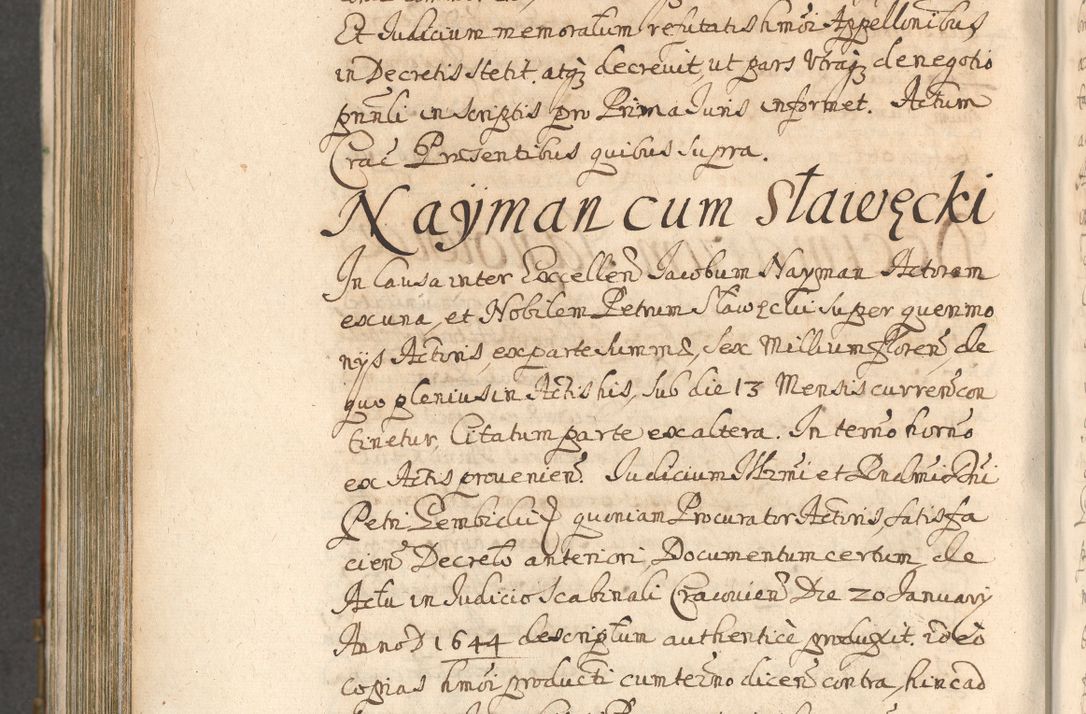 Et Judicium memoratum refutatis hmõi Appellonibus
in Decretis stetit. atqz decrevit, ut pars Utraqz de negotio
pñnti in scriptis pro Prima Iuris informet. Actum
Crac Presentibus quibus supra.
Nayman cum Sławęcki
In Causa inter Excellen Jacobum Nayman Actorem
ex una, et Nobilem Petrum Sławęcki super querimo
nijs Actoris, ex parte summæ, sex Millium floren de
quo plenius in Actis his, sub die 13 Mensis curren con
tinetur, Citatum parte ex altera. In termo horno
ex Actis provenien. Judicium Illrmi et Rndmi Dni
Petri Gembicki quoniam Procurator Actoris, satisfa
cien Decreto anteriori, Documentum certum, de
Actu in Judicio Scabinali Cracovien Die 20 January
Anno D 1644 descriptum authenticè produxit. ideo
copias hmõi producti cum termo dicen contra, hinc ad